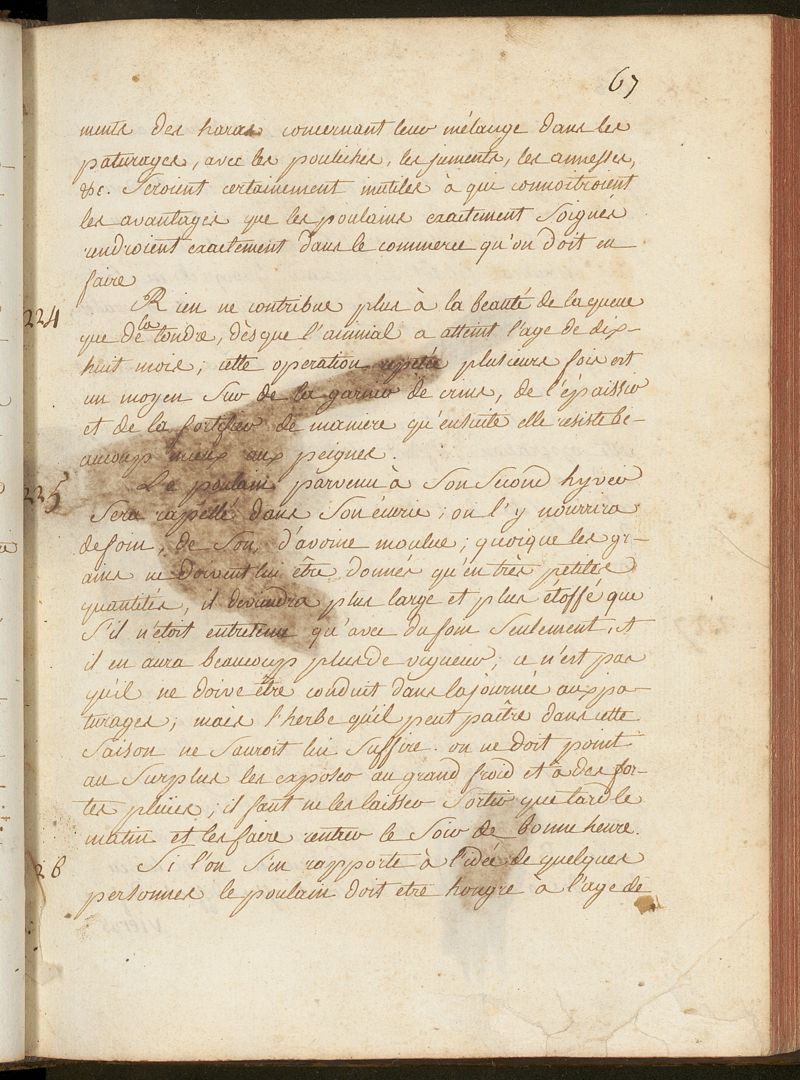 67
ments des haras concernant leur mélange dans les
paturages, avec les pouliches, les juments, les annesses,
&c. seroient certainement inutiles à qui connoitroient
les avantages que les poulains exactement soignés
rendroient exactement dans le commerce qu'on doit en
faire
224 Rien ne contribue plus à la beauté de la queue
que de la tondre, dès que l'animal a atteint l'age de dix-
huit mois; cette operation repétée plusieurs fois est
un moyen sur de la garnir de crins, de l'épaissir
et de la fortifier de maniere qu'ensuite elle resiste be-
aucoup mieux aux peignes.
225 Le poulain parvenu à son second hyver
sera rappellé dans son écurie; on l'y nourrira
de foin, de son, d'avoine moulue; quoique les gr-
ains ne doivent lui être donnés qu'en très petites
quantités, il deviendra plus large et plus étoffé que
s'il n'étoit entretenu qu'avec du foin seulement, et
il en aura beaucoup plus de vigueur; ce n'est pas
qu'il ne doive être conduit dans la journée aux pa-
turages; mais l'herbe qu'il peut paître dans cette
saison ne sauroit lui suffire. on ne doit point
au surplus les exposer au grand froid et à des for-
tes pluies; il faut ne les laisser sortir que tard le
matin et les faire rentrer le soir de bonne heure.
26 Si l'on s'en rapporte à l'idée de quelques
personnes le poulain doit etre hongré à l'age de